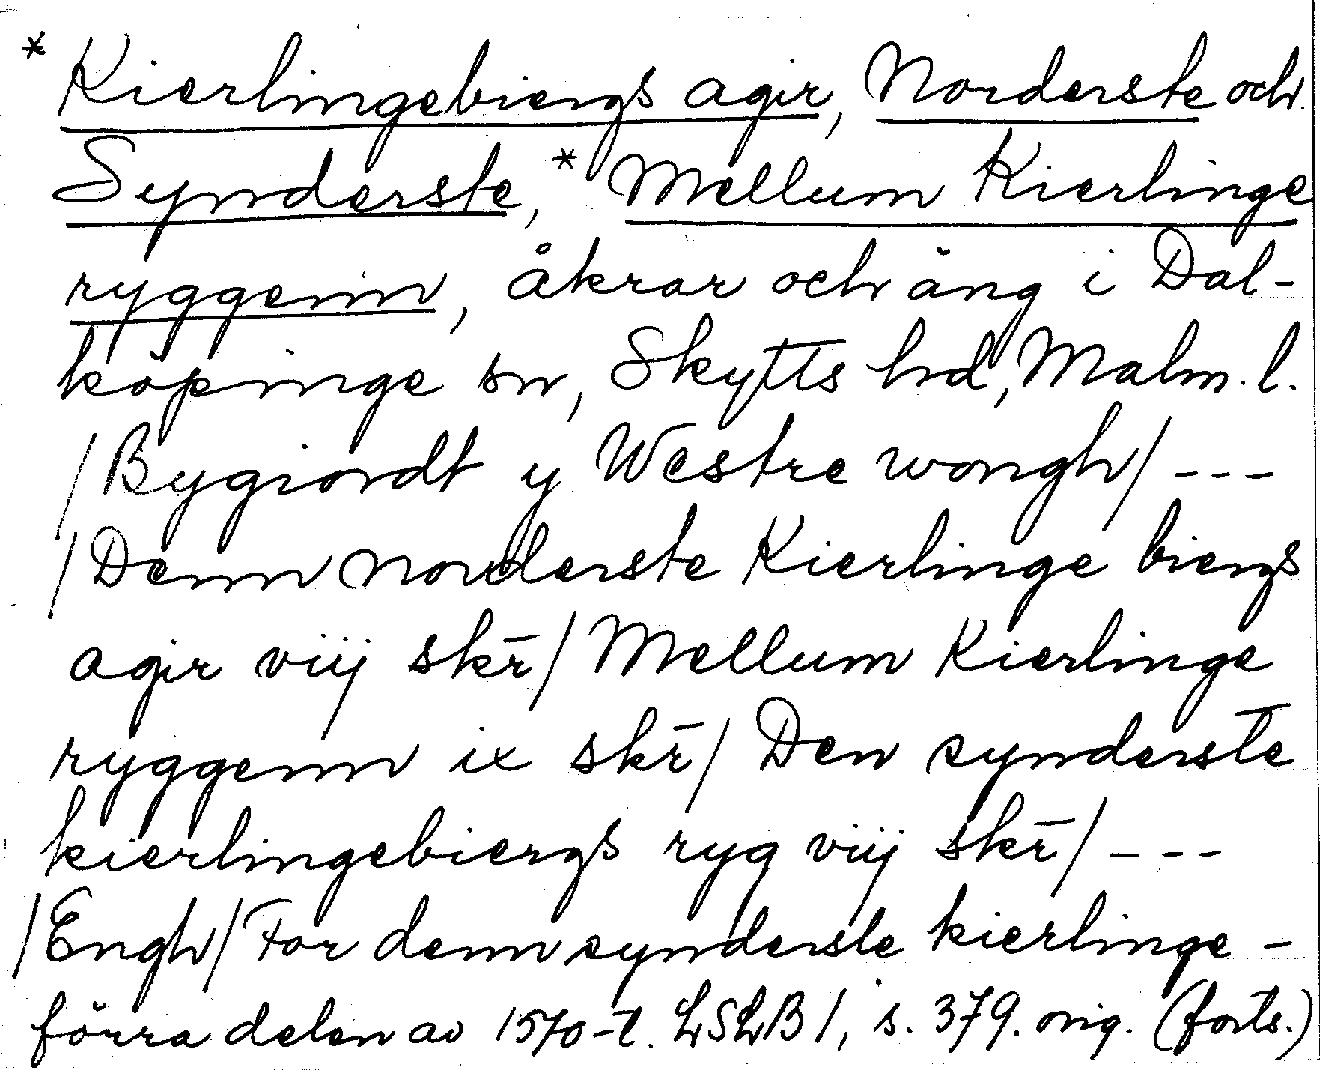 * Kierlingebiergs agir, Norderste och
Synderste, * Mellum Kierlinge
ryggenn, åkrar och äng i Dal-
köpinge sn, Skytts hd, Malm. l.
/Bygiordt y Westre wongh/ ---
/Denn Norderste Kierlinge biergs
agir viij skr̄/ Mellum Kierlinge
ryggenn ix skr̄/ Den synderste
kierlingebiergs ryg viij skr̄/ ---
/Engh/ For denn synderste kierlinge-
förra delen av 1570-t. LSLB 1, s. 379. orig. (forts.)